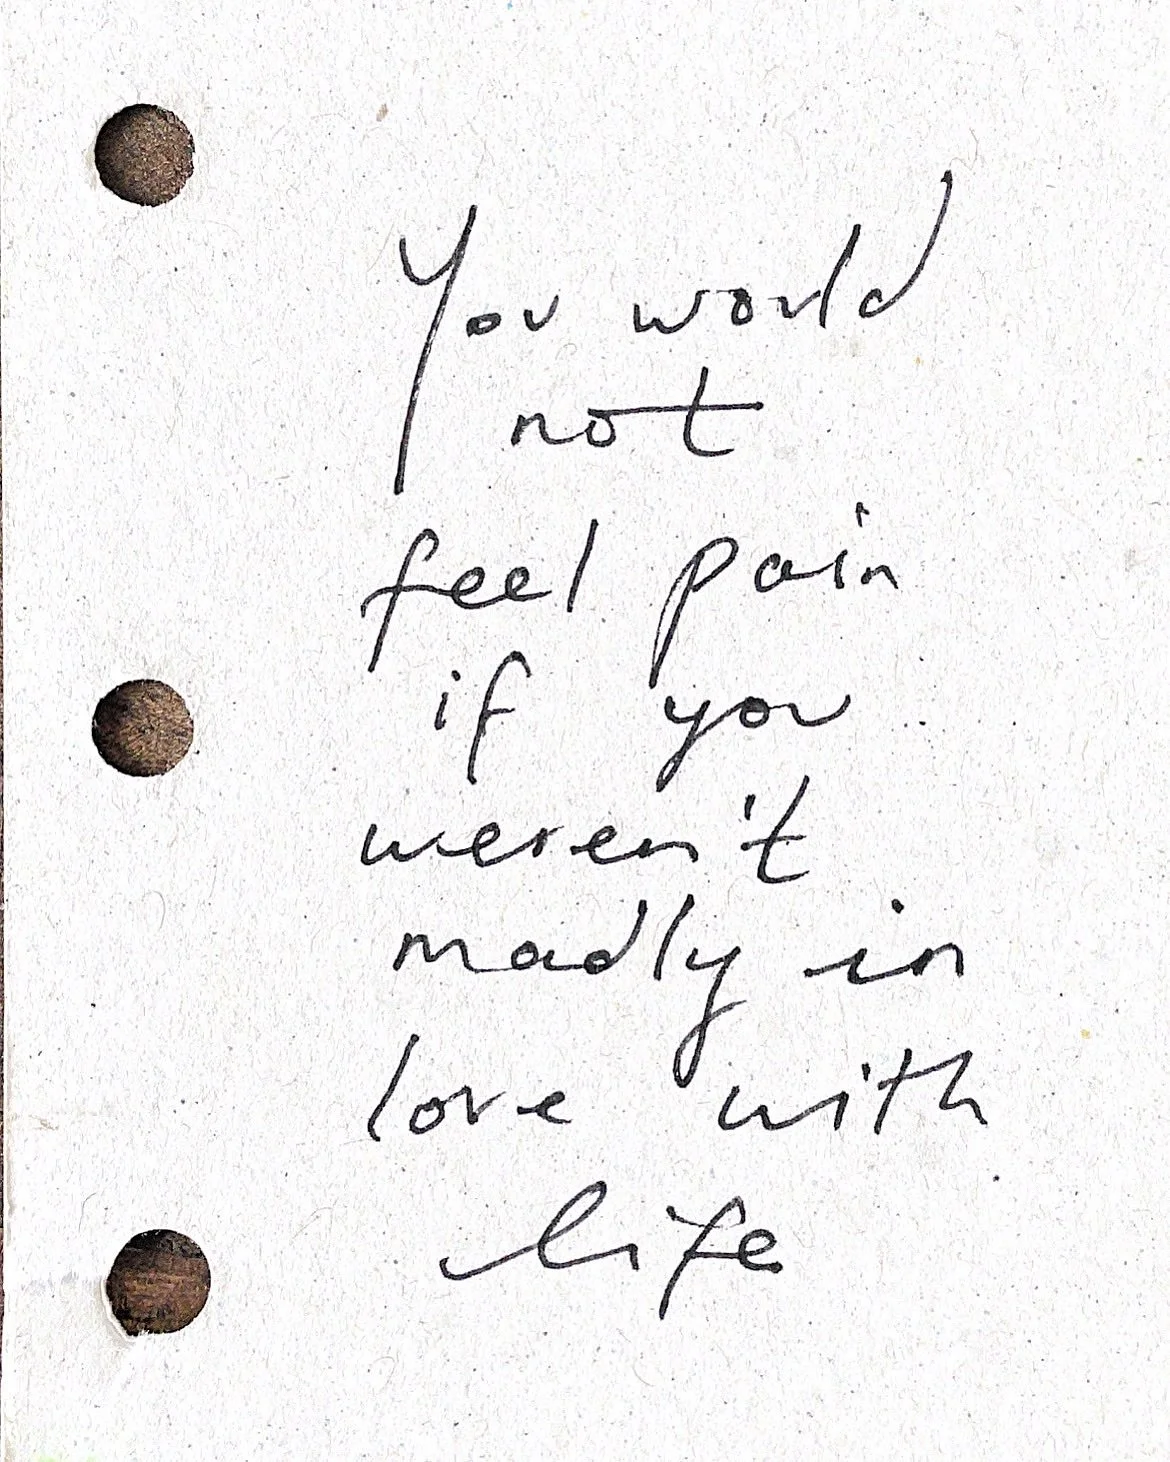 You would
not
feel pain
if you
weren't
madly in
love with
life